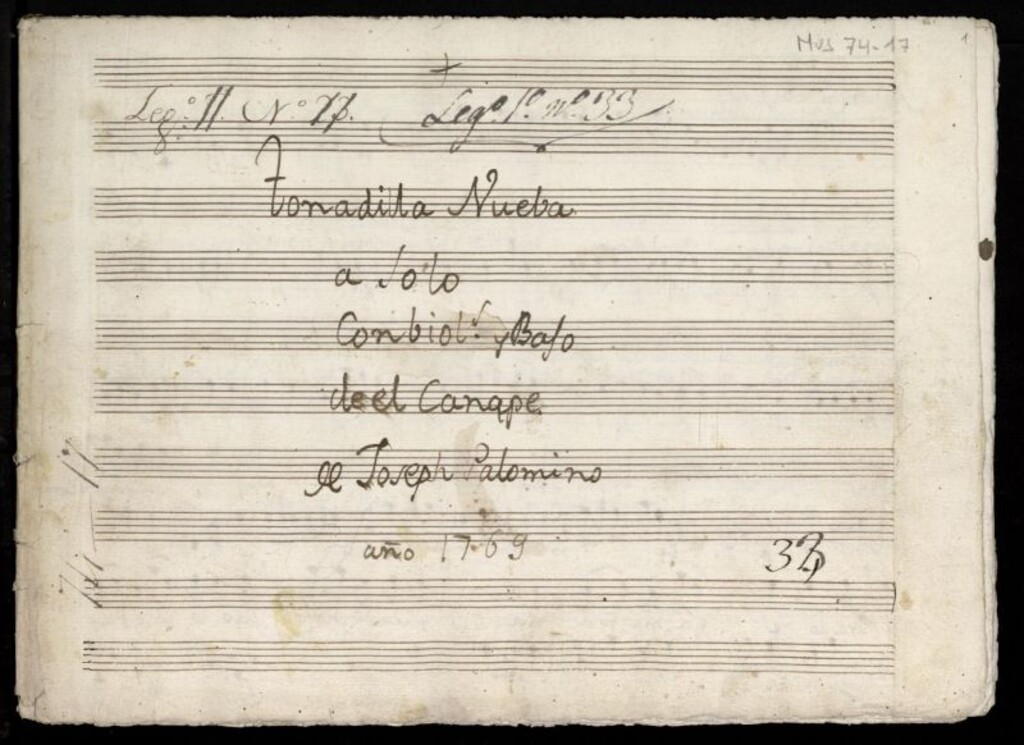 Mus 74-17
1
+
Leg.º 11. Nº 17. Legº 1º nº 33
Tonadilla Nueba
a Solo
Con biol.s y Bajo
de el Canape
de Joseph Palomino
año 1769
33
17